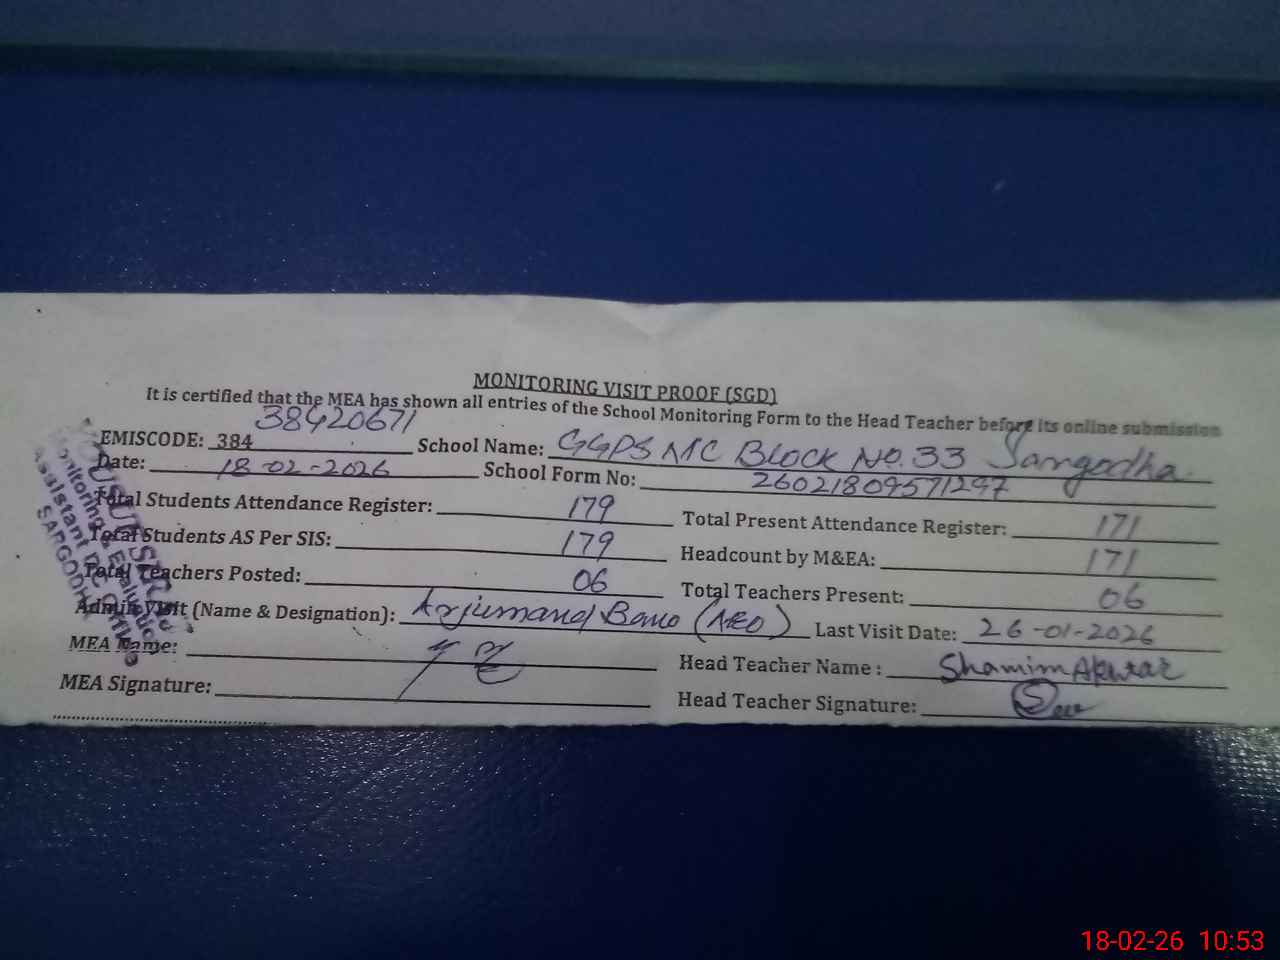 MONITORING VISIT PROOF (SGD)
It is certified that the MEA has shown all entries of the School Monitoring Form to the Head Teacher before its online submission
38420671
EMISCODE: 384 School Name: GGPS MC Block No. 33 Sargodha
Date: 18-02-2026 School Form No: 26021809571297
Total Students Attendance Register: 179 Total Present Attendance Register: 171
Total Students AS Per SIS: 179 Headcount by M&EA: 171
Total Teachers Posted: 06 Total Teachers Present: 06
Admin Visit (Name & Designation): Arjumand Bano (AEO) Last Visit Date: 26-01-2026
MEA Name: Head Teacher Name : Shamim Akhtar
MEA Signature: Head Teacher Signature:
Monitoring & Evaluation
Assistant
SARGODHA
18-02-26 10:53